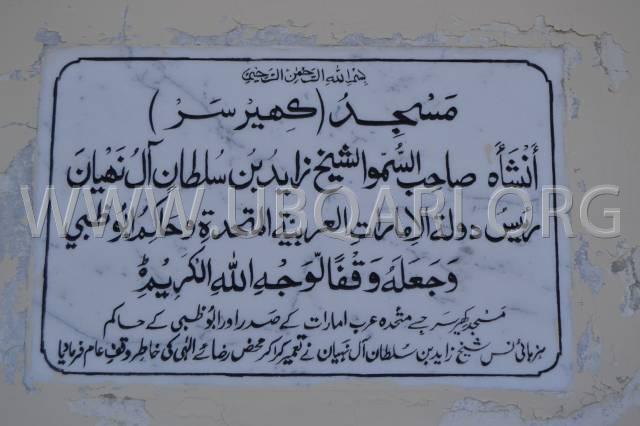 بسم الله الرحمن الرحيم
مَسْجِدُ (كِهيْر سَر)
أَنْشَأَهُ صَاحِبُ السُّمو الشيخ زايد بن سُلطانِ آل نَهيَان
رَئيسُ دولة الإمارات العربية المتحدة وحَاكِمُ أبوظبي
وَجَعَلَهُ وَقْفًا لوَجْهِ اللهِ الكَرِيمْ
مسجد کھیر سر جسے متحدہ عرب امارات کے صدر اور ابوظبی کے حاکم
ہز ہائی نس شیخ زاید بن سلطان آل نہیان نے تعمیر کرا کر محض رضائے الٰہی کی خاطر وقفِ عام فرما دیا
WWW.UBQARI.ORG